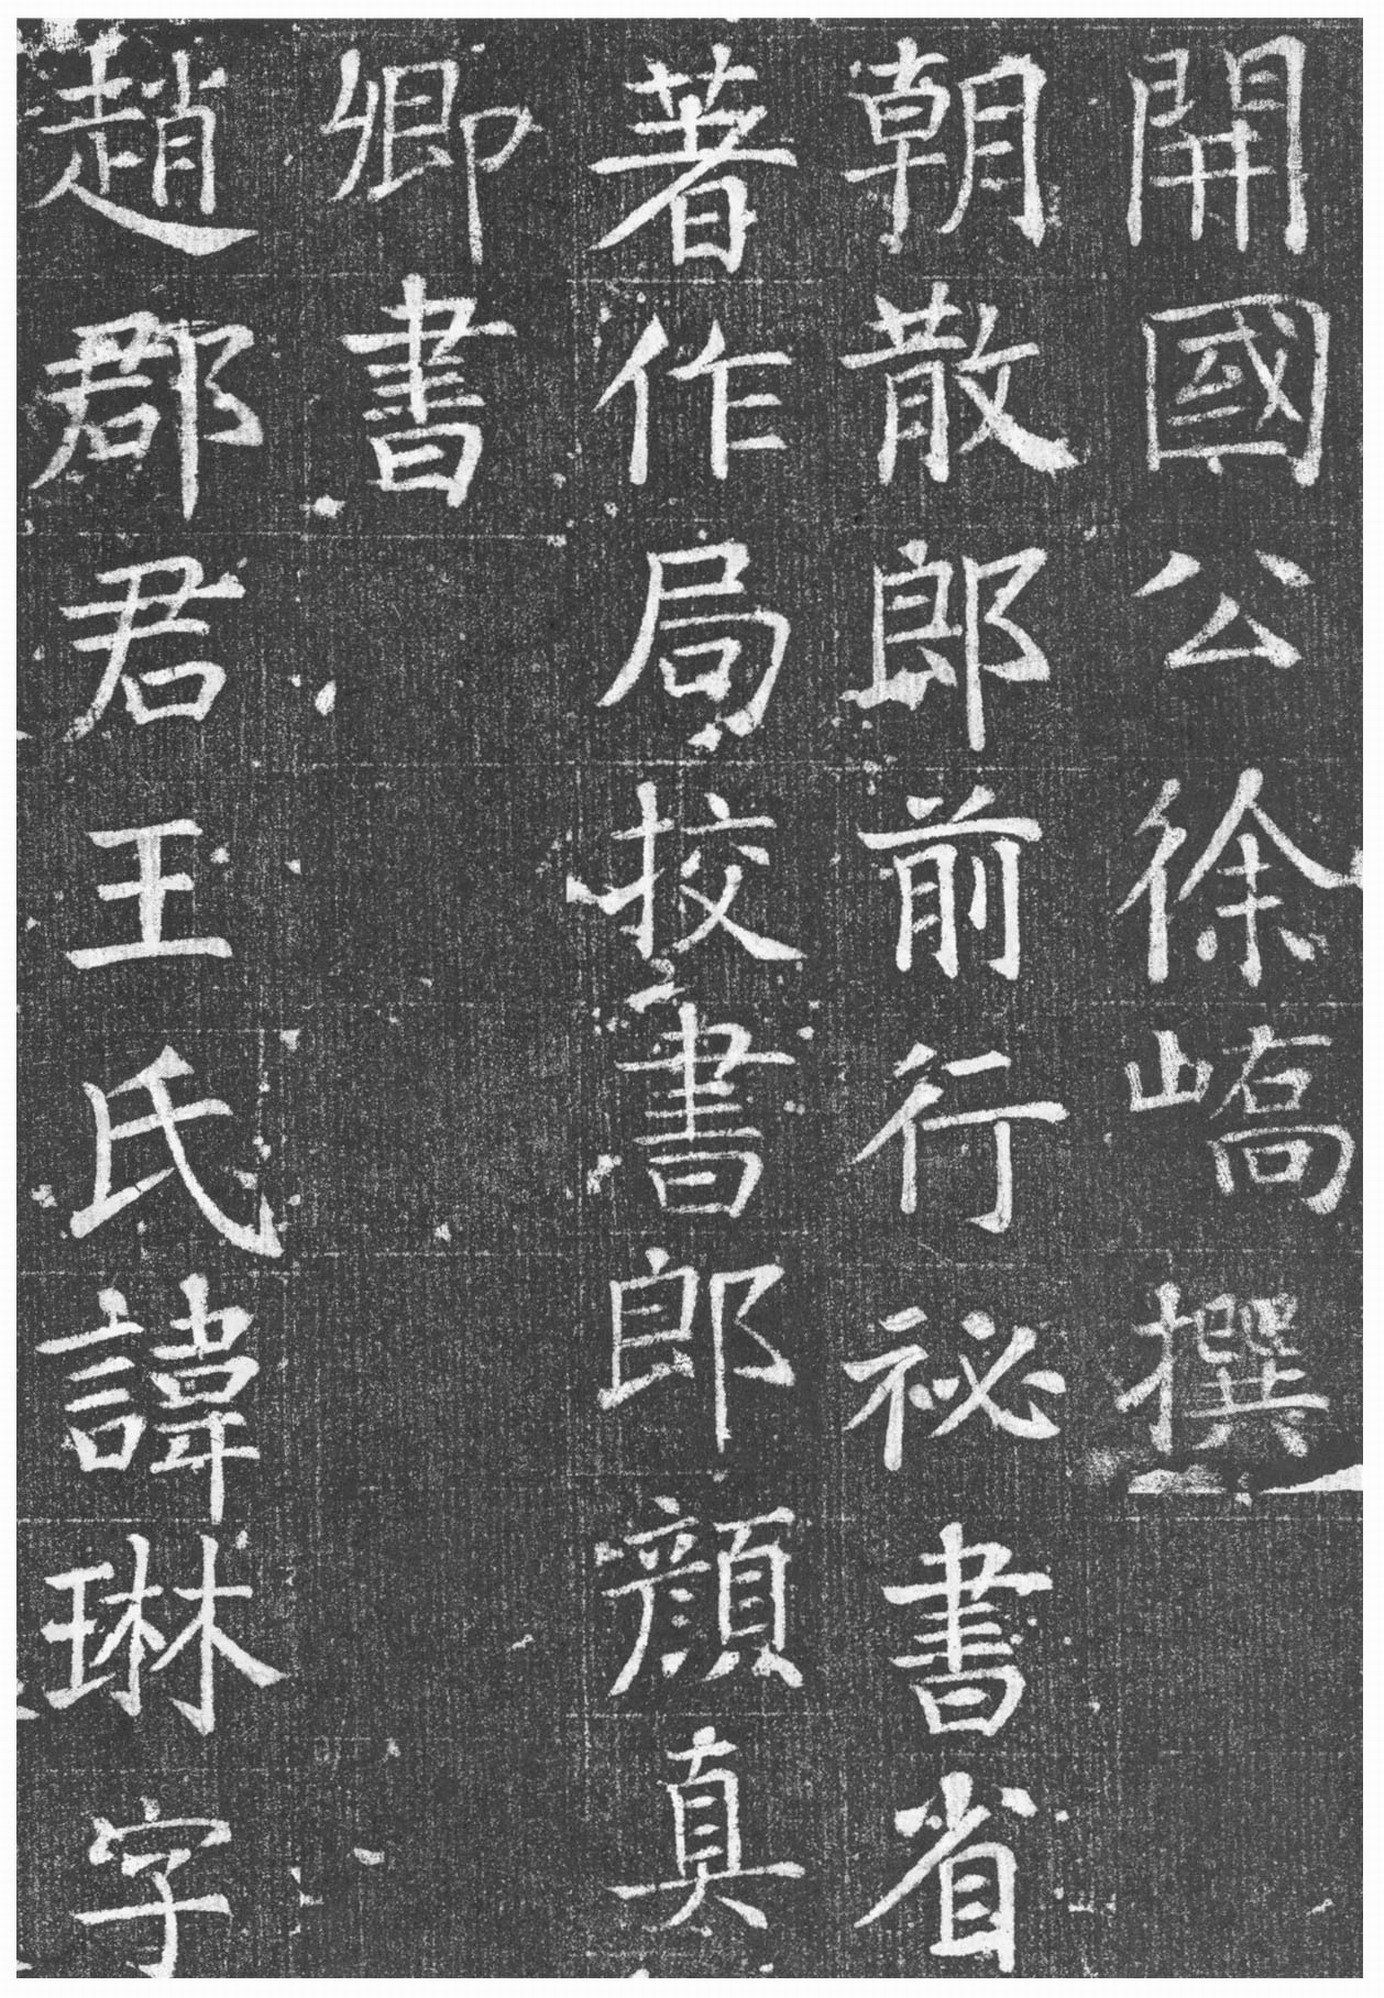 開國公徐嶠撰
朝散郎前行祕書省
著作局挍書郎顏真
卿書
趙郡君王氏諱琳字